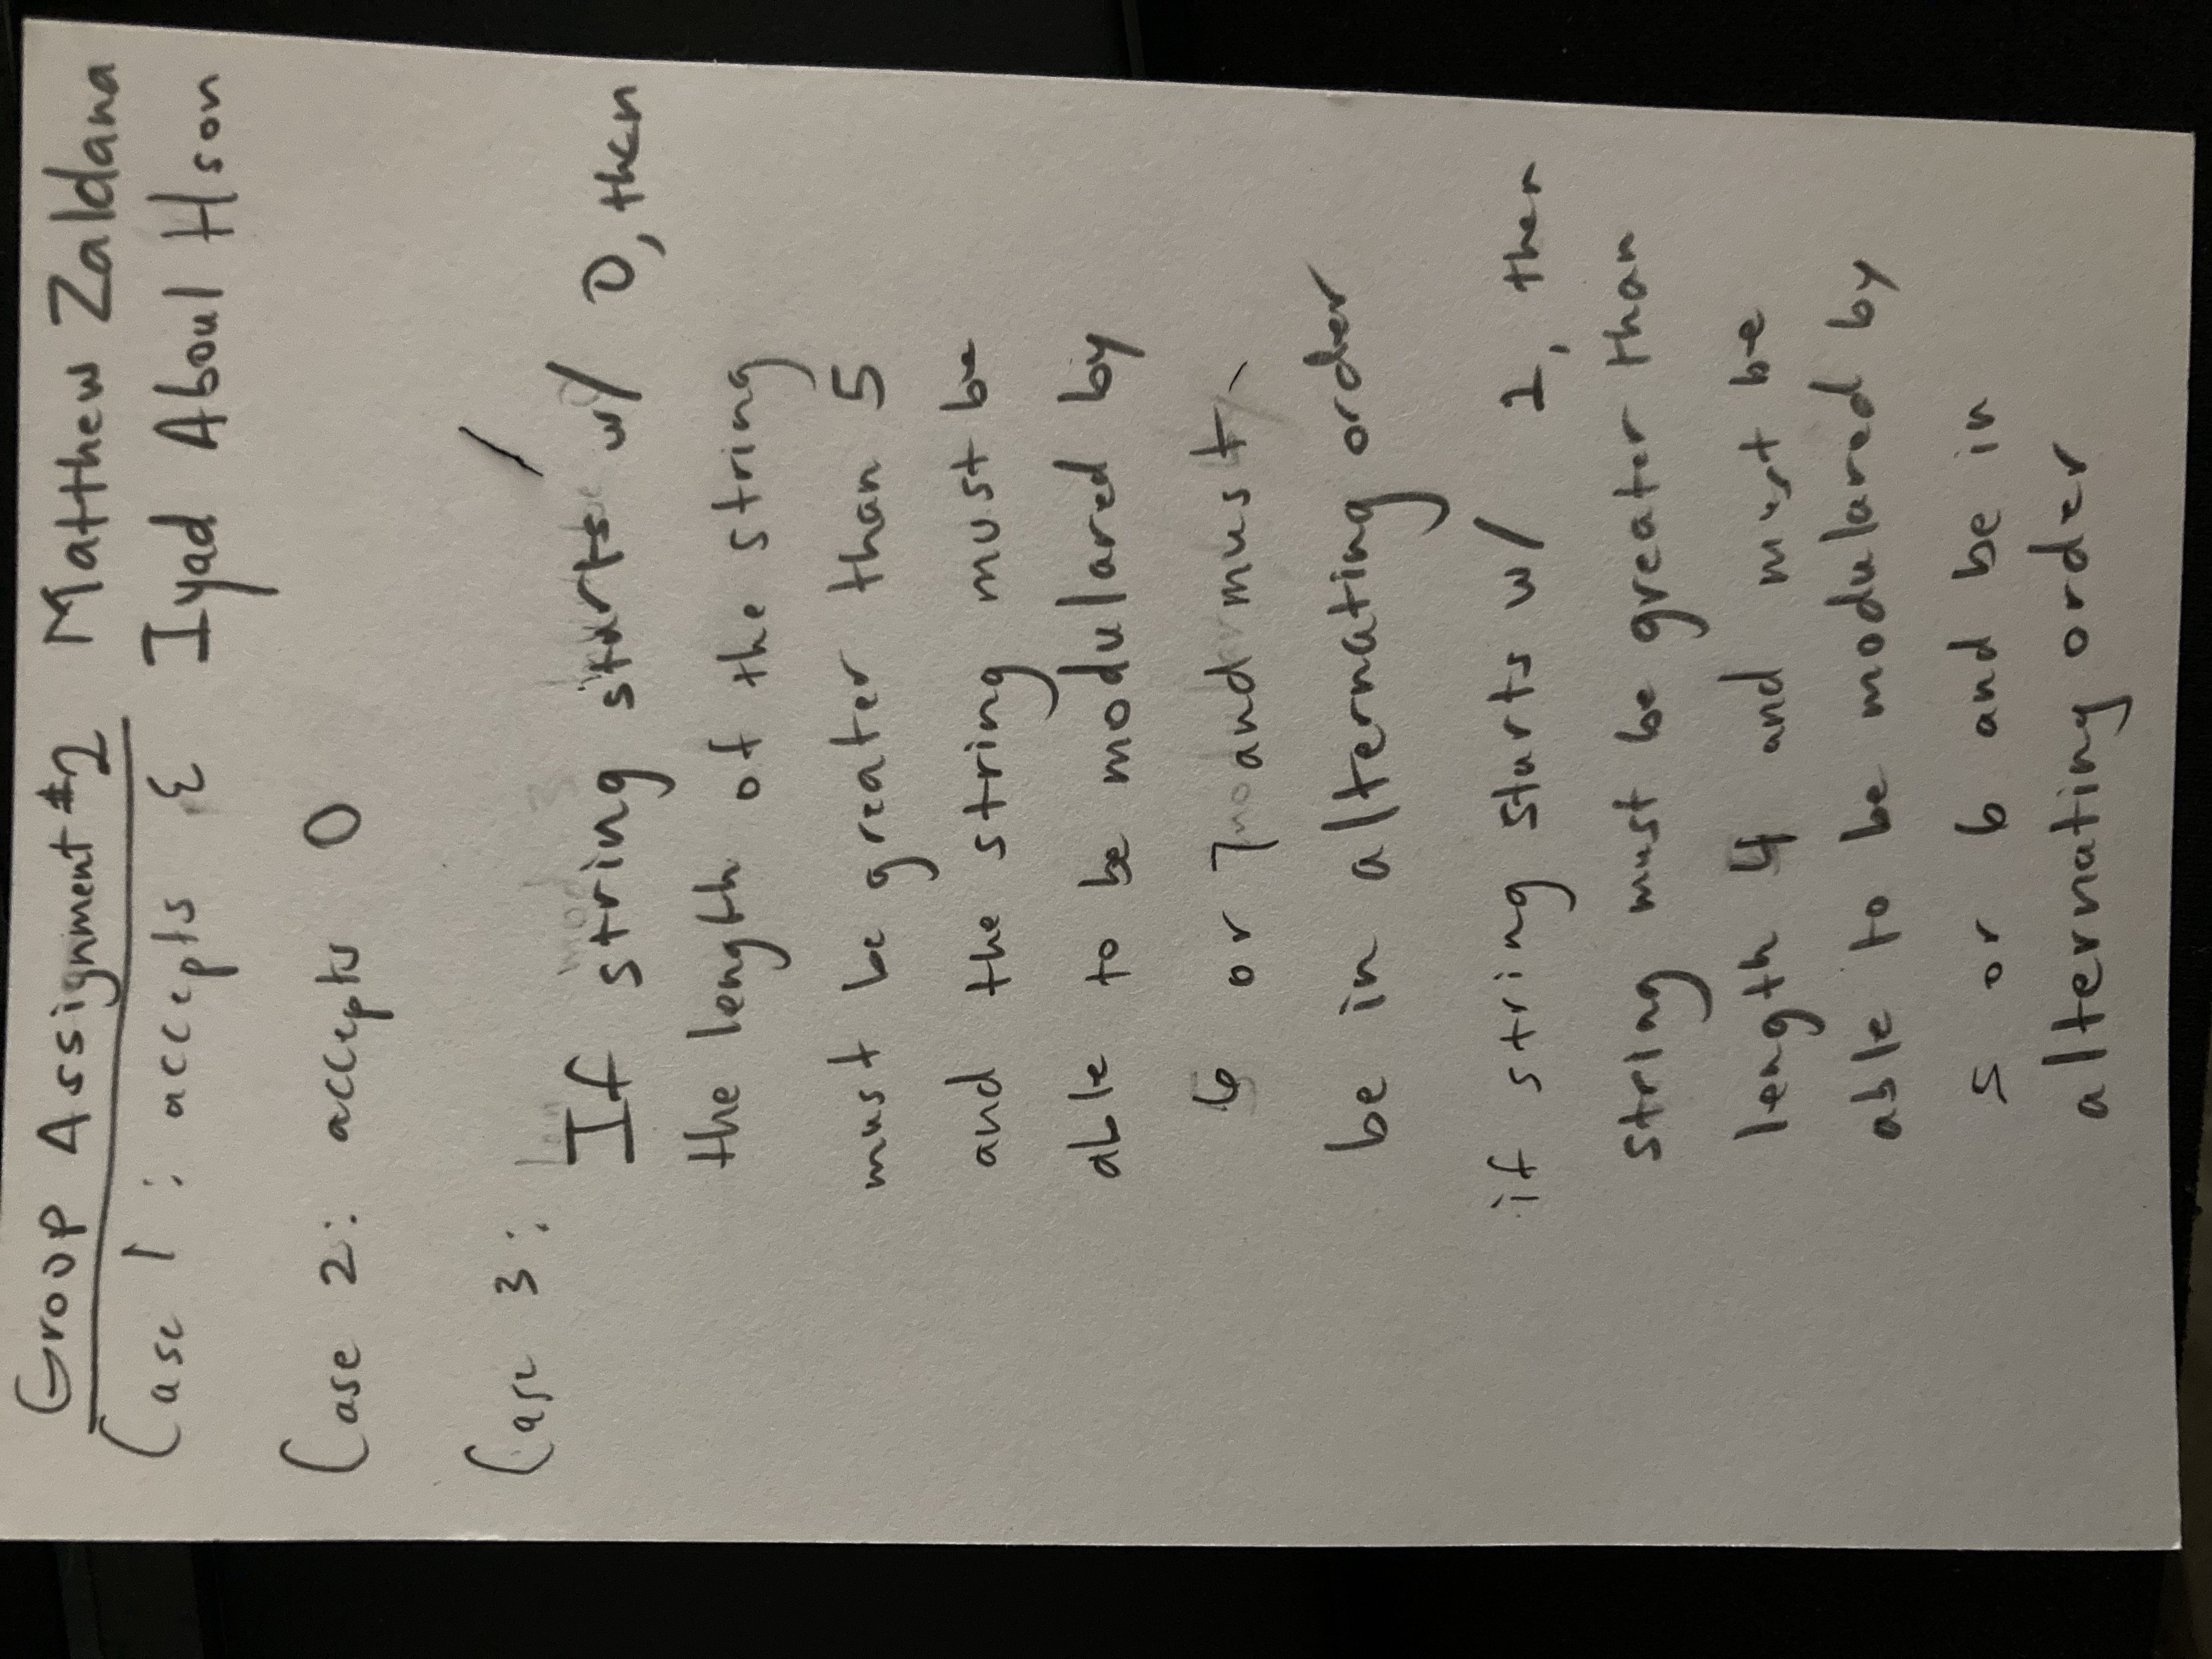 Group Assignment #2 Matthew Zaldana
Case 1: accepts ε Iyad Aboul Hson
Case 2: accepts 0
Case 3:
If string starts w/ 0, then
the length of the string
must be greater than 5
and the string must be
able to be modulared by
6 or 7 and must
be in alternating order
if string starts w/ 1, then
string must be greater than
length 4 and must be
able to be modulared by
5 or 6 and be in
alternating order